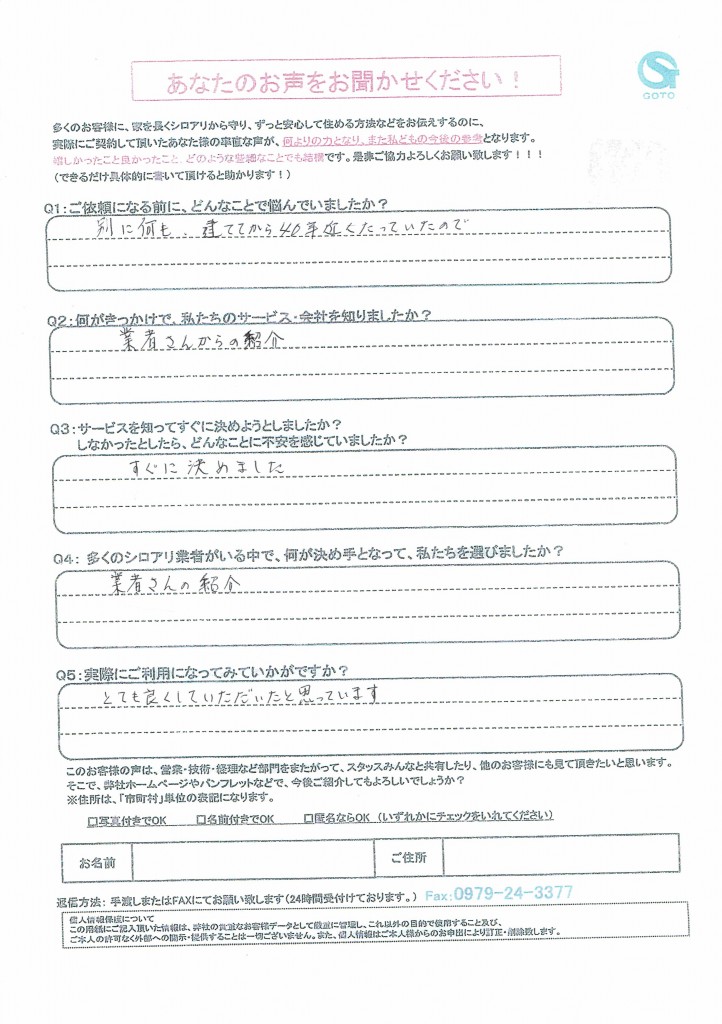 GOTO
あなたのお声をお聞かせください！
多くのお客様に、家を長くシロアリから守り、ずっと安心して住める方法などをお伝えするのに、
実際にご契約して頂いたあなた様の率直な声が、何よりの力となり、また私どもの今後の参考となります。
嬉しかったこと良かったこと、どのような些細なことでも結構です。是非ご協力よろしくお願い致します！！！
（できるだけ具体的に書いて頂けると助かります！）
Q1：ご依頼になる前に、どんなことで悩んでいましたか？
別に何も、建ててから40年近くたっていたので
Q2：何がきっかけで、私たちのサービス・会社を知りましたか？
業者さんからの紹介
Q3：サービスを知ってすぐに決めようとしましたか？
しなかったとしたら、どんなことに不安を感じていましたか？
すぐに決めました
Q4： 多くのシロアリ業者がいる中で、何が決め手となって、私たちを選びましたか？
業者さんの紹介
Q5：実際にご利用になってみていかがですか？
とても良くしていただいたと思っています
このお客様の声は、営業・技術・経理など部門をまたがって、スタッスみんなと共有したり、他のお客様にも見て頂きたいと思います。
そこで、弊社ホームページやパンフレットなどで、今後ご紹介してもよろしいでしょうか？
※住所は、「市町村」単位の表記になります。
□写真付きでOK □名前付きでOK □匿名ならOK （いずれかにチェックをいれてください）
お名前 ご住所
返信方法： 手渡しまたはFAXにてお願い致します（24時間受付けております。） Fax:0979-24-3377
個人情報保護について
この用紙にご記入頂いた情報は、弊社の貴重なお客様データとして厳重に管理し、これ以外の目的で使用すること及び、
ご本人の許可なく外部への開示・提供することは一切ございません。また、個人情報はご本人様からのお申出により訂正・削除致します。